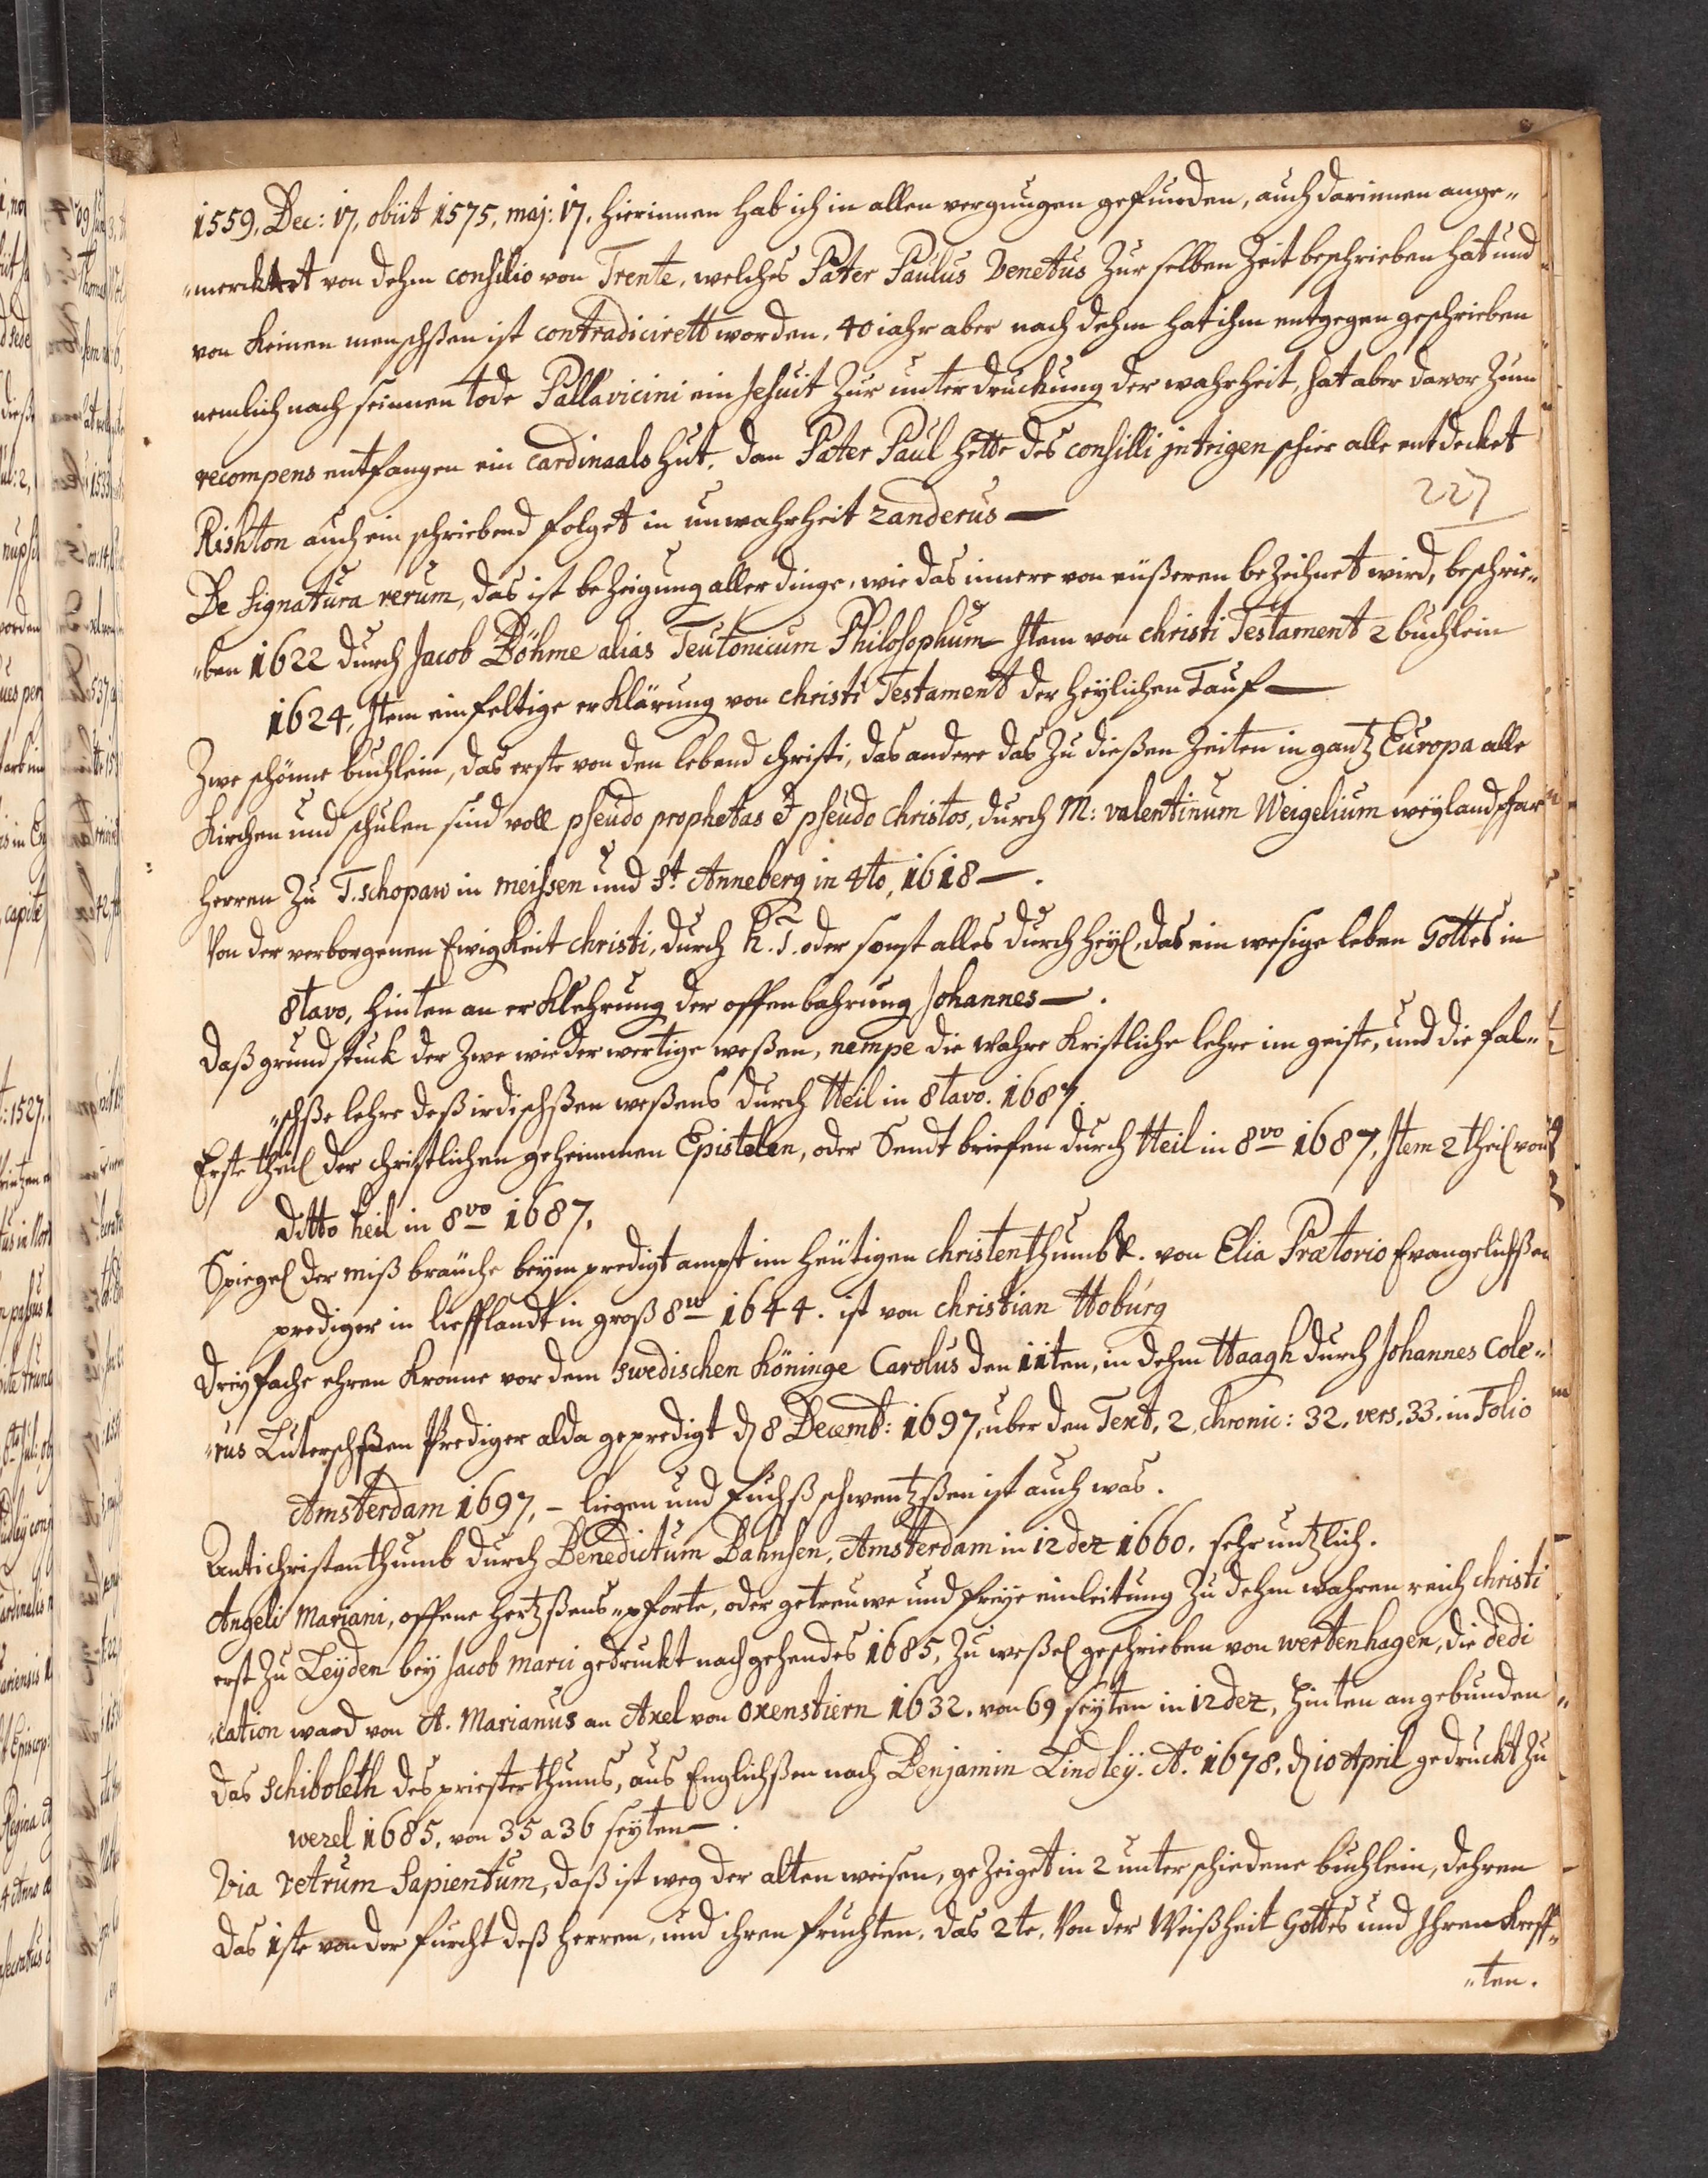 1559, Dec: 17, obiit 1575, maj: 17. hierinnen hab ich in allen vergnugen gefunden, auch darinnen ange„
„mercktet von dehm consilio von Trente, welches Pater Paulus Venetus zur selben Zeit beschrieben hat und
von keinen menschßen ist contradicirett worden. 40 iahr aber nach dehm hat ihm entgegen geschrieben
nemlich nach seinnen tode Pallavicini ein Jesuit zur unterdruckung der wahrheit, hat aber davor zum
recompens entfangen ein Cardinaals hut, dan Pater Paul hette des consilli jntrigen schier alle entdecket
Rishton auch ein schriebend folget in unwahrheit zanderus —
227
De Signatura rerum, das ist bezeigung aller dinge, wie das innere von eüßeren bezeihnet wird, beschrie„
„ben 1622 durch Jacob Böhme alias Teutonicum Philosophum — Jtem von christi Testament 2 buchlein
1624, Jtem einfeltige erklärung von christi Testament der heylichen Tauf —
Zwe schönne buchlein, das erste von den lebend christi, das andere das zu dießen zeiten in gantz Europa alle
Kirchen und schulen sind voll pseudo prophetas et pseudo christos, durch M: valentinum Weigelium weyland pfar
herren zu T.schopaw in meissen und St. Anneberg in 4to, 1618 —.
Von der verborgenen Ewigkeit christi, durch h. T. oder sonst alles durch heyl, das ein wesige leben Gottes in
8tavo, hinten an erklehrung der offenbahrung Johannes —.
Daß grundstuck der zwe wiederwertige weßen, nempe die wahre kristliche lehre im geiste, und die fal„
„schße lehre deß irdischßen weßens durch Heil in 8tavo. 1687.
Erste theil der christlichen geheimmen Epistelen, oder Sendt briefen durch Heil in 8vo 1687, Jtem 2 theil von
ditto heil in 8vo 1687,
Spiegel der miß bräuche beym predigt ampt im heütigen christenthumb &. von Elia Prætorio Evangelischßen
prediger in liefflandt in groß 8vo 1644. ist von christian Hoburg
Dreyfache ehren kronne vor dem swedischen köninge Carolus den iiten, in dehm Haagh durch Johannes Cole„
„rus Luterschßen Prediger alda gepredigt d 8 Decemb: 1697, uber den Text, 2, chronic: 32. vers. 33. in Folio
Amsterdam 1697, – liegen und fuchß schwentzßen ist auch was.
Antichristenthumb durch Benedictum Bahnsen, Amsterdam in 12 dez 1660. sehr nutzlich.
Angeli Mariani, offene hertzßens„pforte, oder getreuwe und freye einleitung zu dehm wahren reich christi
erst zu Leyden bey Jacob marci gedruckt nach gehendes 1685, zu weßel geschrieben von wertenhagen, die dedi
„cation ward von A. Marianus an Axel von oxenstiern 1632. von 69 seyten in 12 dez, hinten angebunden
das Schiboleth des priesterthums, aus Englischßen nach Benjamin Lindley. Ao. 1678. d 10 April gedruckt zu
wezel 1685, von 35 a 36 seyten —.
Via vetrum Sapientum, daß ist weg der alten weisen, gezeiget in 2 unterschiedene buchlein, dehren
das 1ste von der furcht deß herren, und ihren fruchten. das 2te, Von der Weißheit Gottes und Ihren kreff„
„ten.